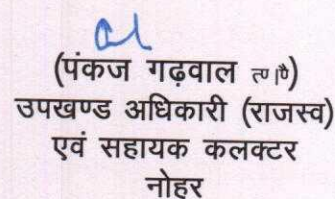 (पंकज गढ़वाल त्ण।पै)
उपखण्ड अधिकारी (राजस्व)
एवं सहायक कलक्टर
नोहर